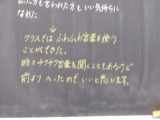 った方も言われた方もいい気持ちに
なれた
クラスではふわふわ言葉を使う
ことができた。
時々チクチク言葉を聞くこともあるけど
前よりへったのでいいと思います。